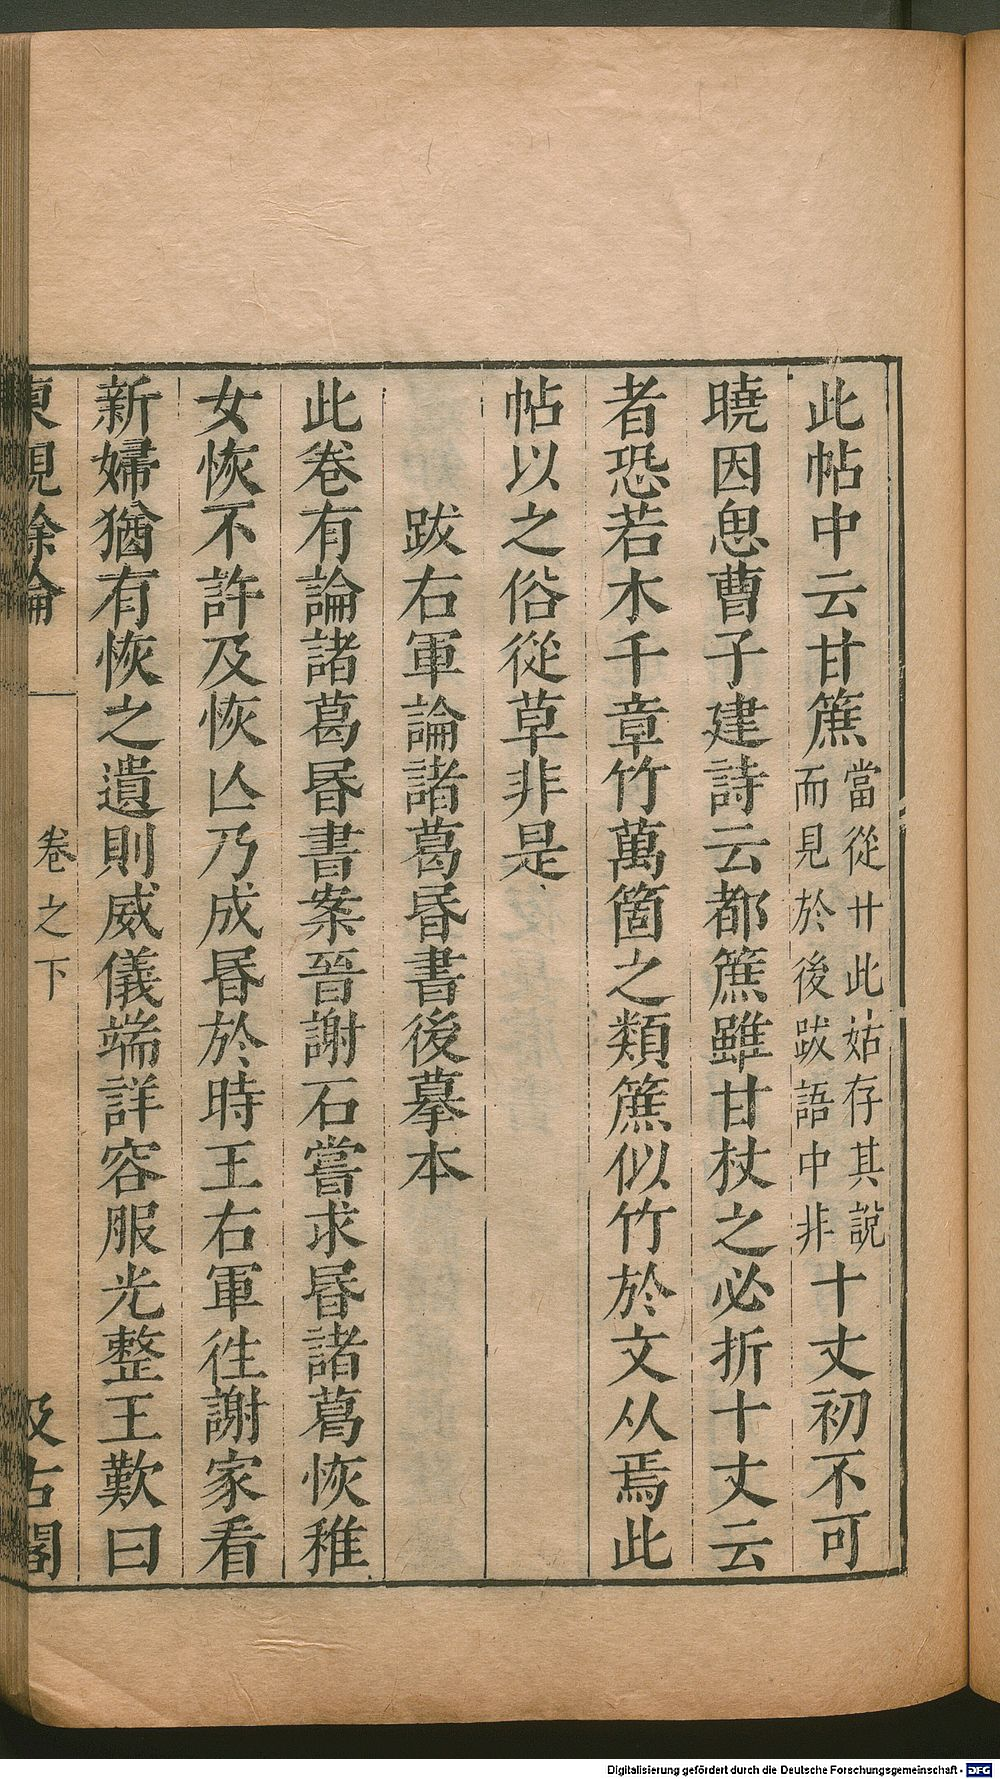 此帖中云甘䉀當從廿此姑存其說而見於後跋語中非十丈初不可
曉因思曹子建詩云都䉀雖甘杖之必折十丈云
者恐若木千章竹萬箇之類䉀似竹於文从焉此
帖以之俗從草非是
跋右軍論諸葛昬書後摹本
此卷有論諸葛昬書案晉謝石嘗求昬諸葛恢稚
女恢不許及恢亾乃成昬於時王右軍徃謝家看
新婦猶有恢之遺則威儀端詳容服光整王歎曰
東觀餘論 卷之下 汲古閣
Digitalisierung gefördert durch die Deutsche Forschungsgemeinschaft - DFG